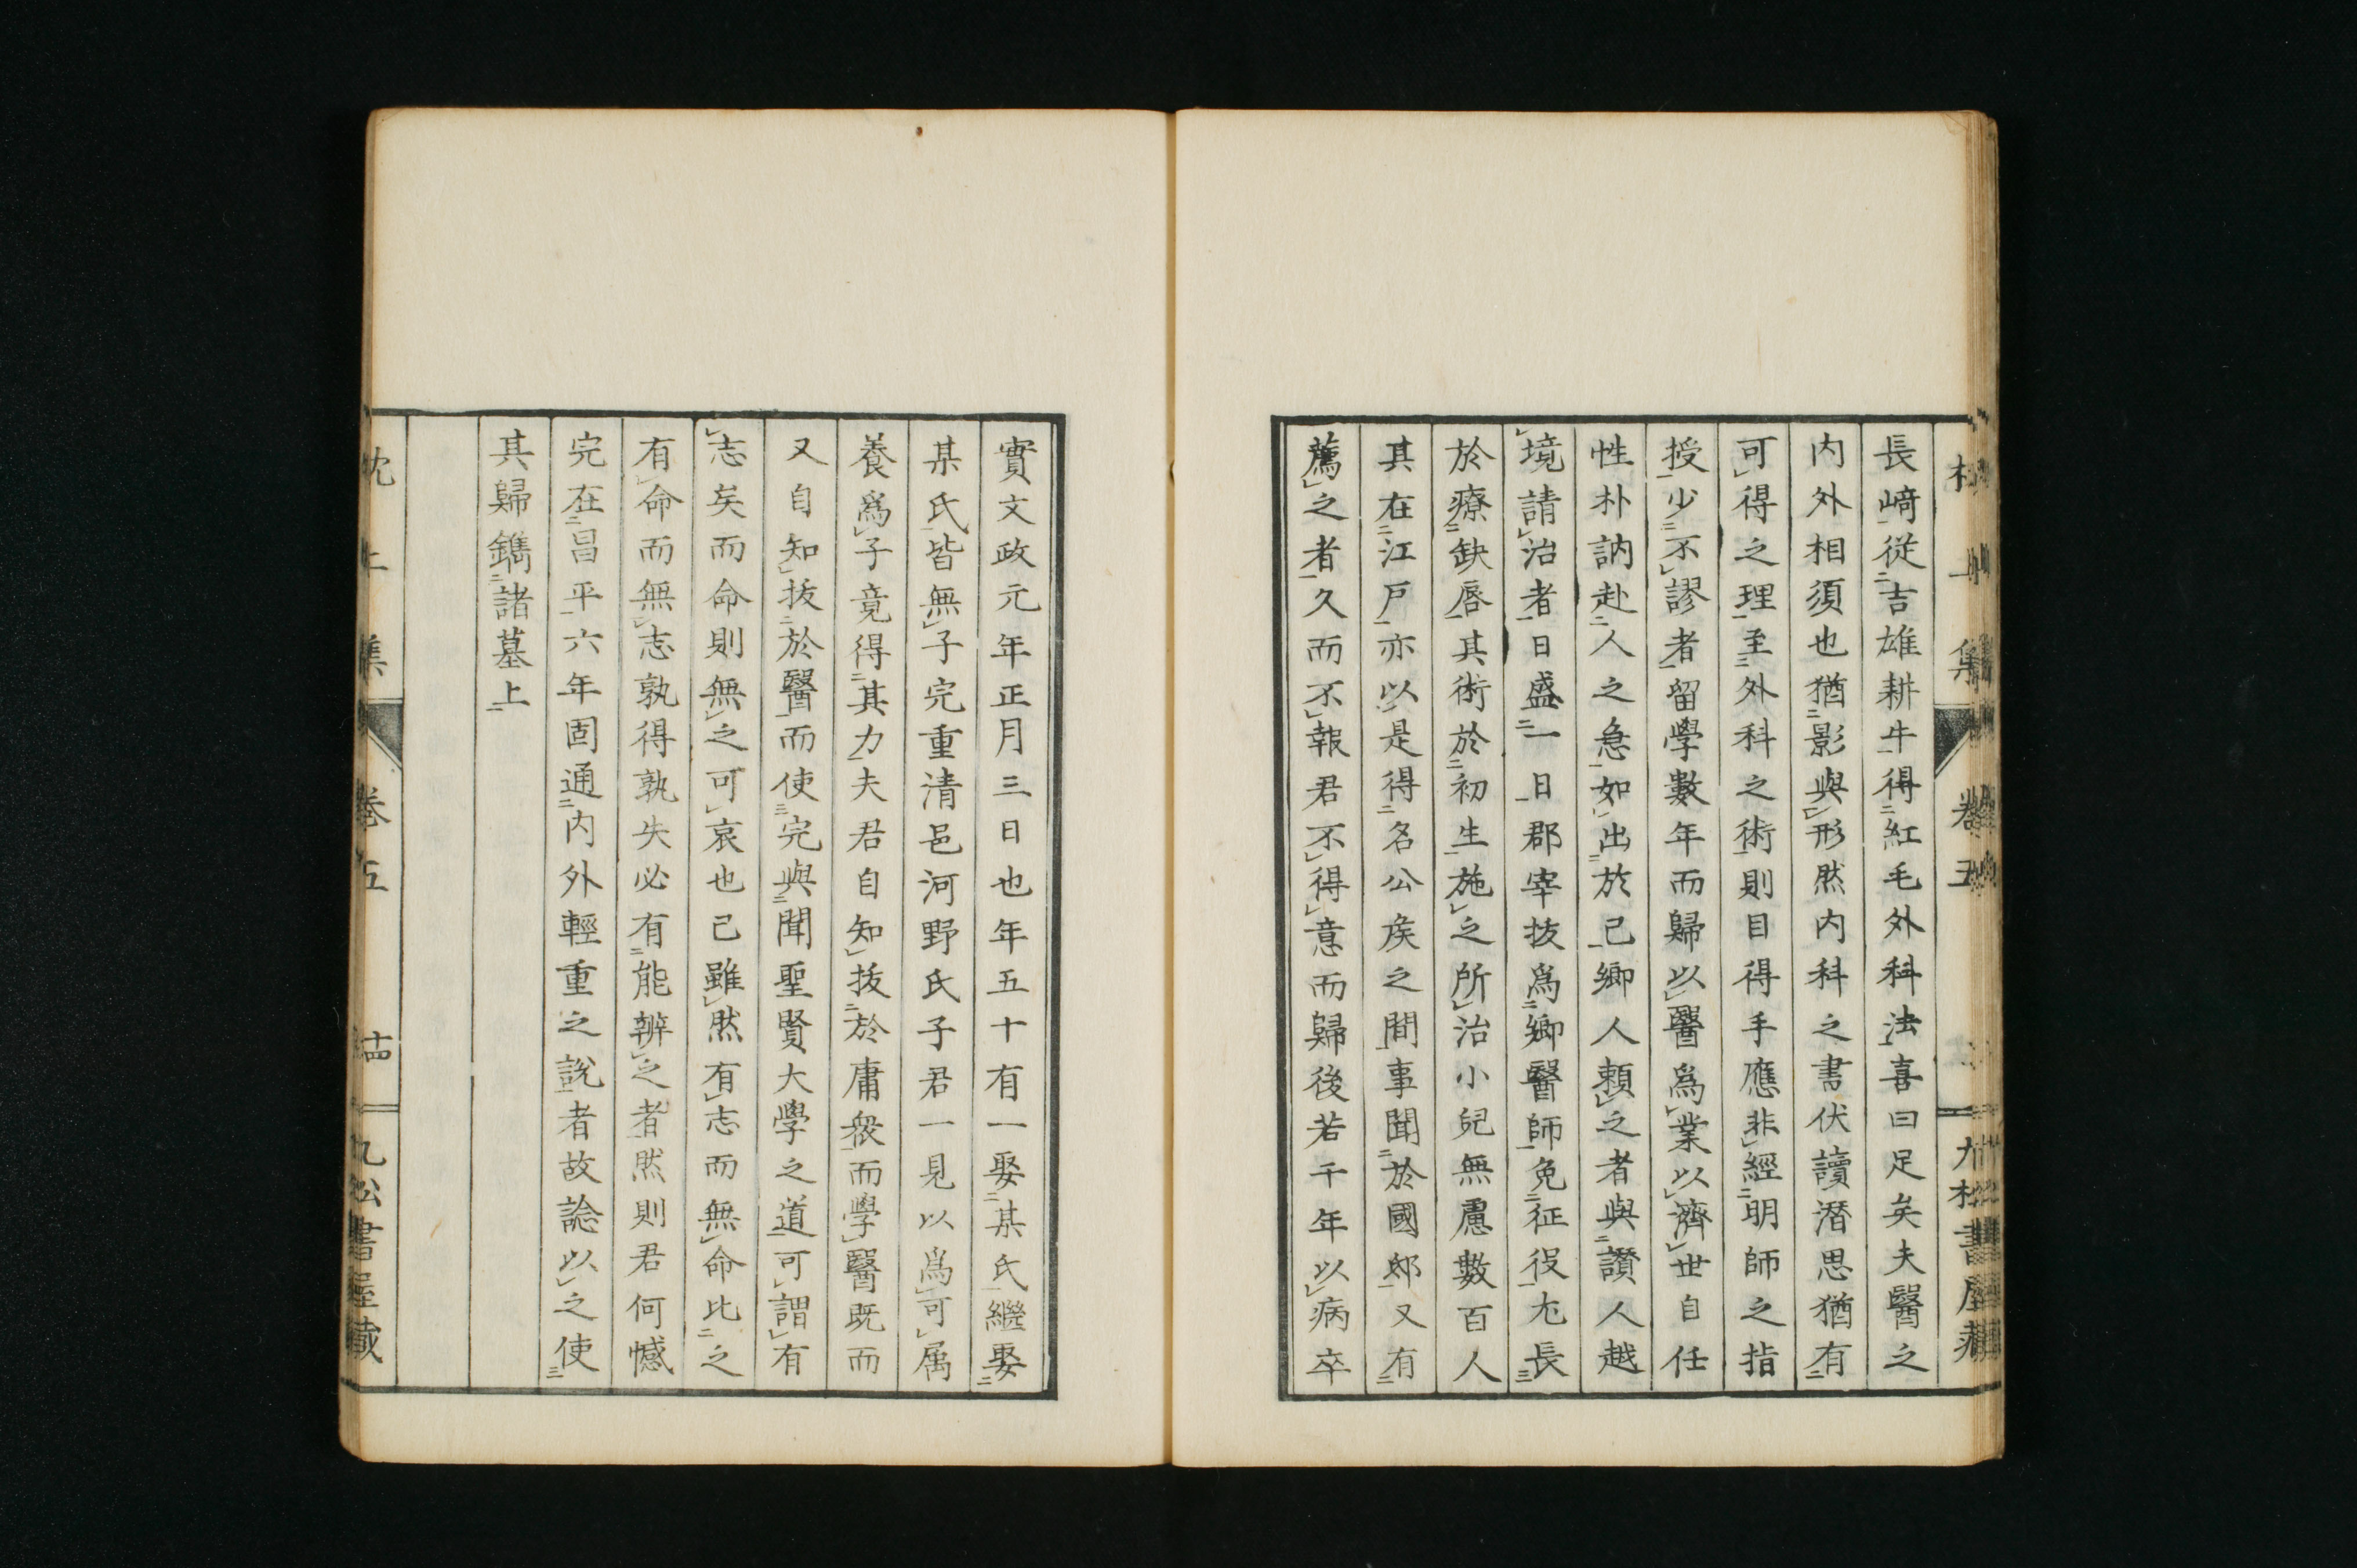 長﨑從吉雄耕牛得紅毛外科法喜曰足矣夫醫之
内外相須也猶影與形然内科之書伏讀潛思猶有
可得之理至外科之術則目得手應非經明師之指
授少不謬者留學數年而歸以醫爲業以濟世自任
性朴訥赴人之急如出於己鄉人賴之者與讚人越
境請治者日盛一日郡宰拔爲鄉醫師免征役尤長
於療缺唇其術於初生施之所治小兒無慮數百人
其在江戶亦以是得名公矦之間事聞於國邸又有
薦之者久而不報君不得意而歸後若干年以病卒
實文政元年正月三日也年五十有一娶某氏繼娶
某氏皆無子完重清邑河野氏子君一見以爲可属
養爲子竟得其力夫君自知拔於庸衆而學醫既而
又自知拔於醫而使完與聞聖賢大學之道可謂有
志矣而命則無之可哀也已雖然有志而無命比之
有命而無志孰得孰失必有能辨之者然則君何憾
完在昌平六年固通内外輕重之說者故論以之使
其歸鐫諸墓上
卷五
十四
九松書屋藏